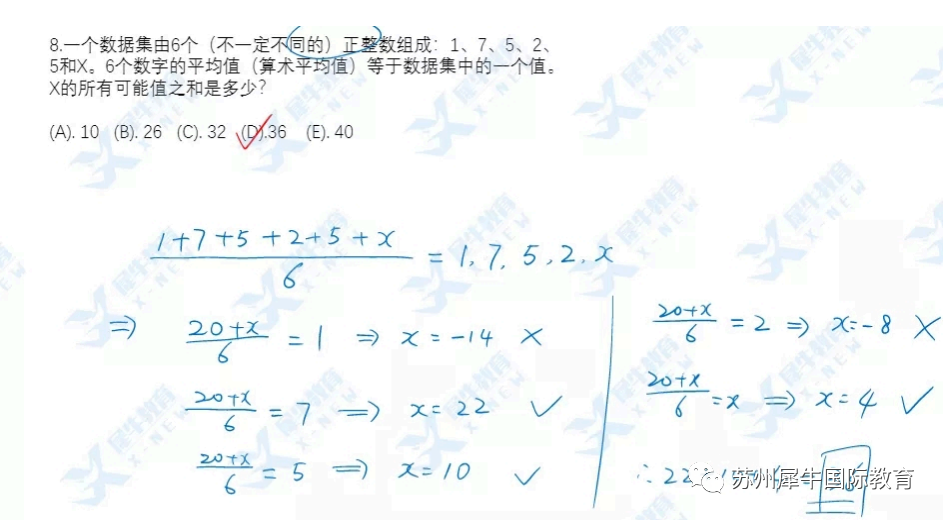 8.一个数据集由6个（不一定不同的）正整数组成：1、7、5、2、
5和X。6个数字的平均值（算术平均值）等于数据集中的一个值。
X的所有可能值之和是多少？
(A). 10 (B). 26 (C). 32 (D).36 (E). 40
(1+7+5+2+5+x)/6 = 1, 7, 5, 2, x
⇒ (20+x)/6 = 1 ⇒ x = -14 ×
(20+x)/6 = 7 ⇒ x = 22 ✓
(20+x)/6 = 5 ⇒ x = 10 ✓
(20+x)/6 = 2 ⇒ x = -8 ×
(20+x)/6 = x ⇒ x = 4 ✓
∴ 22
苏州犀牛国际教育
犀牛教育
X-NEW